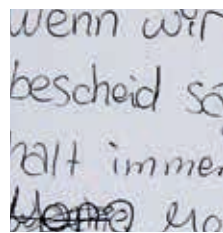 wenn wir
bescheid
halt immer